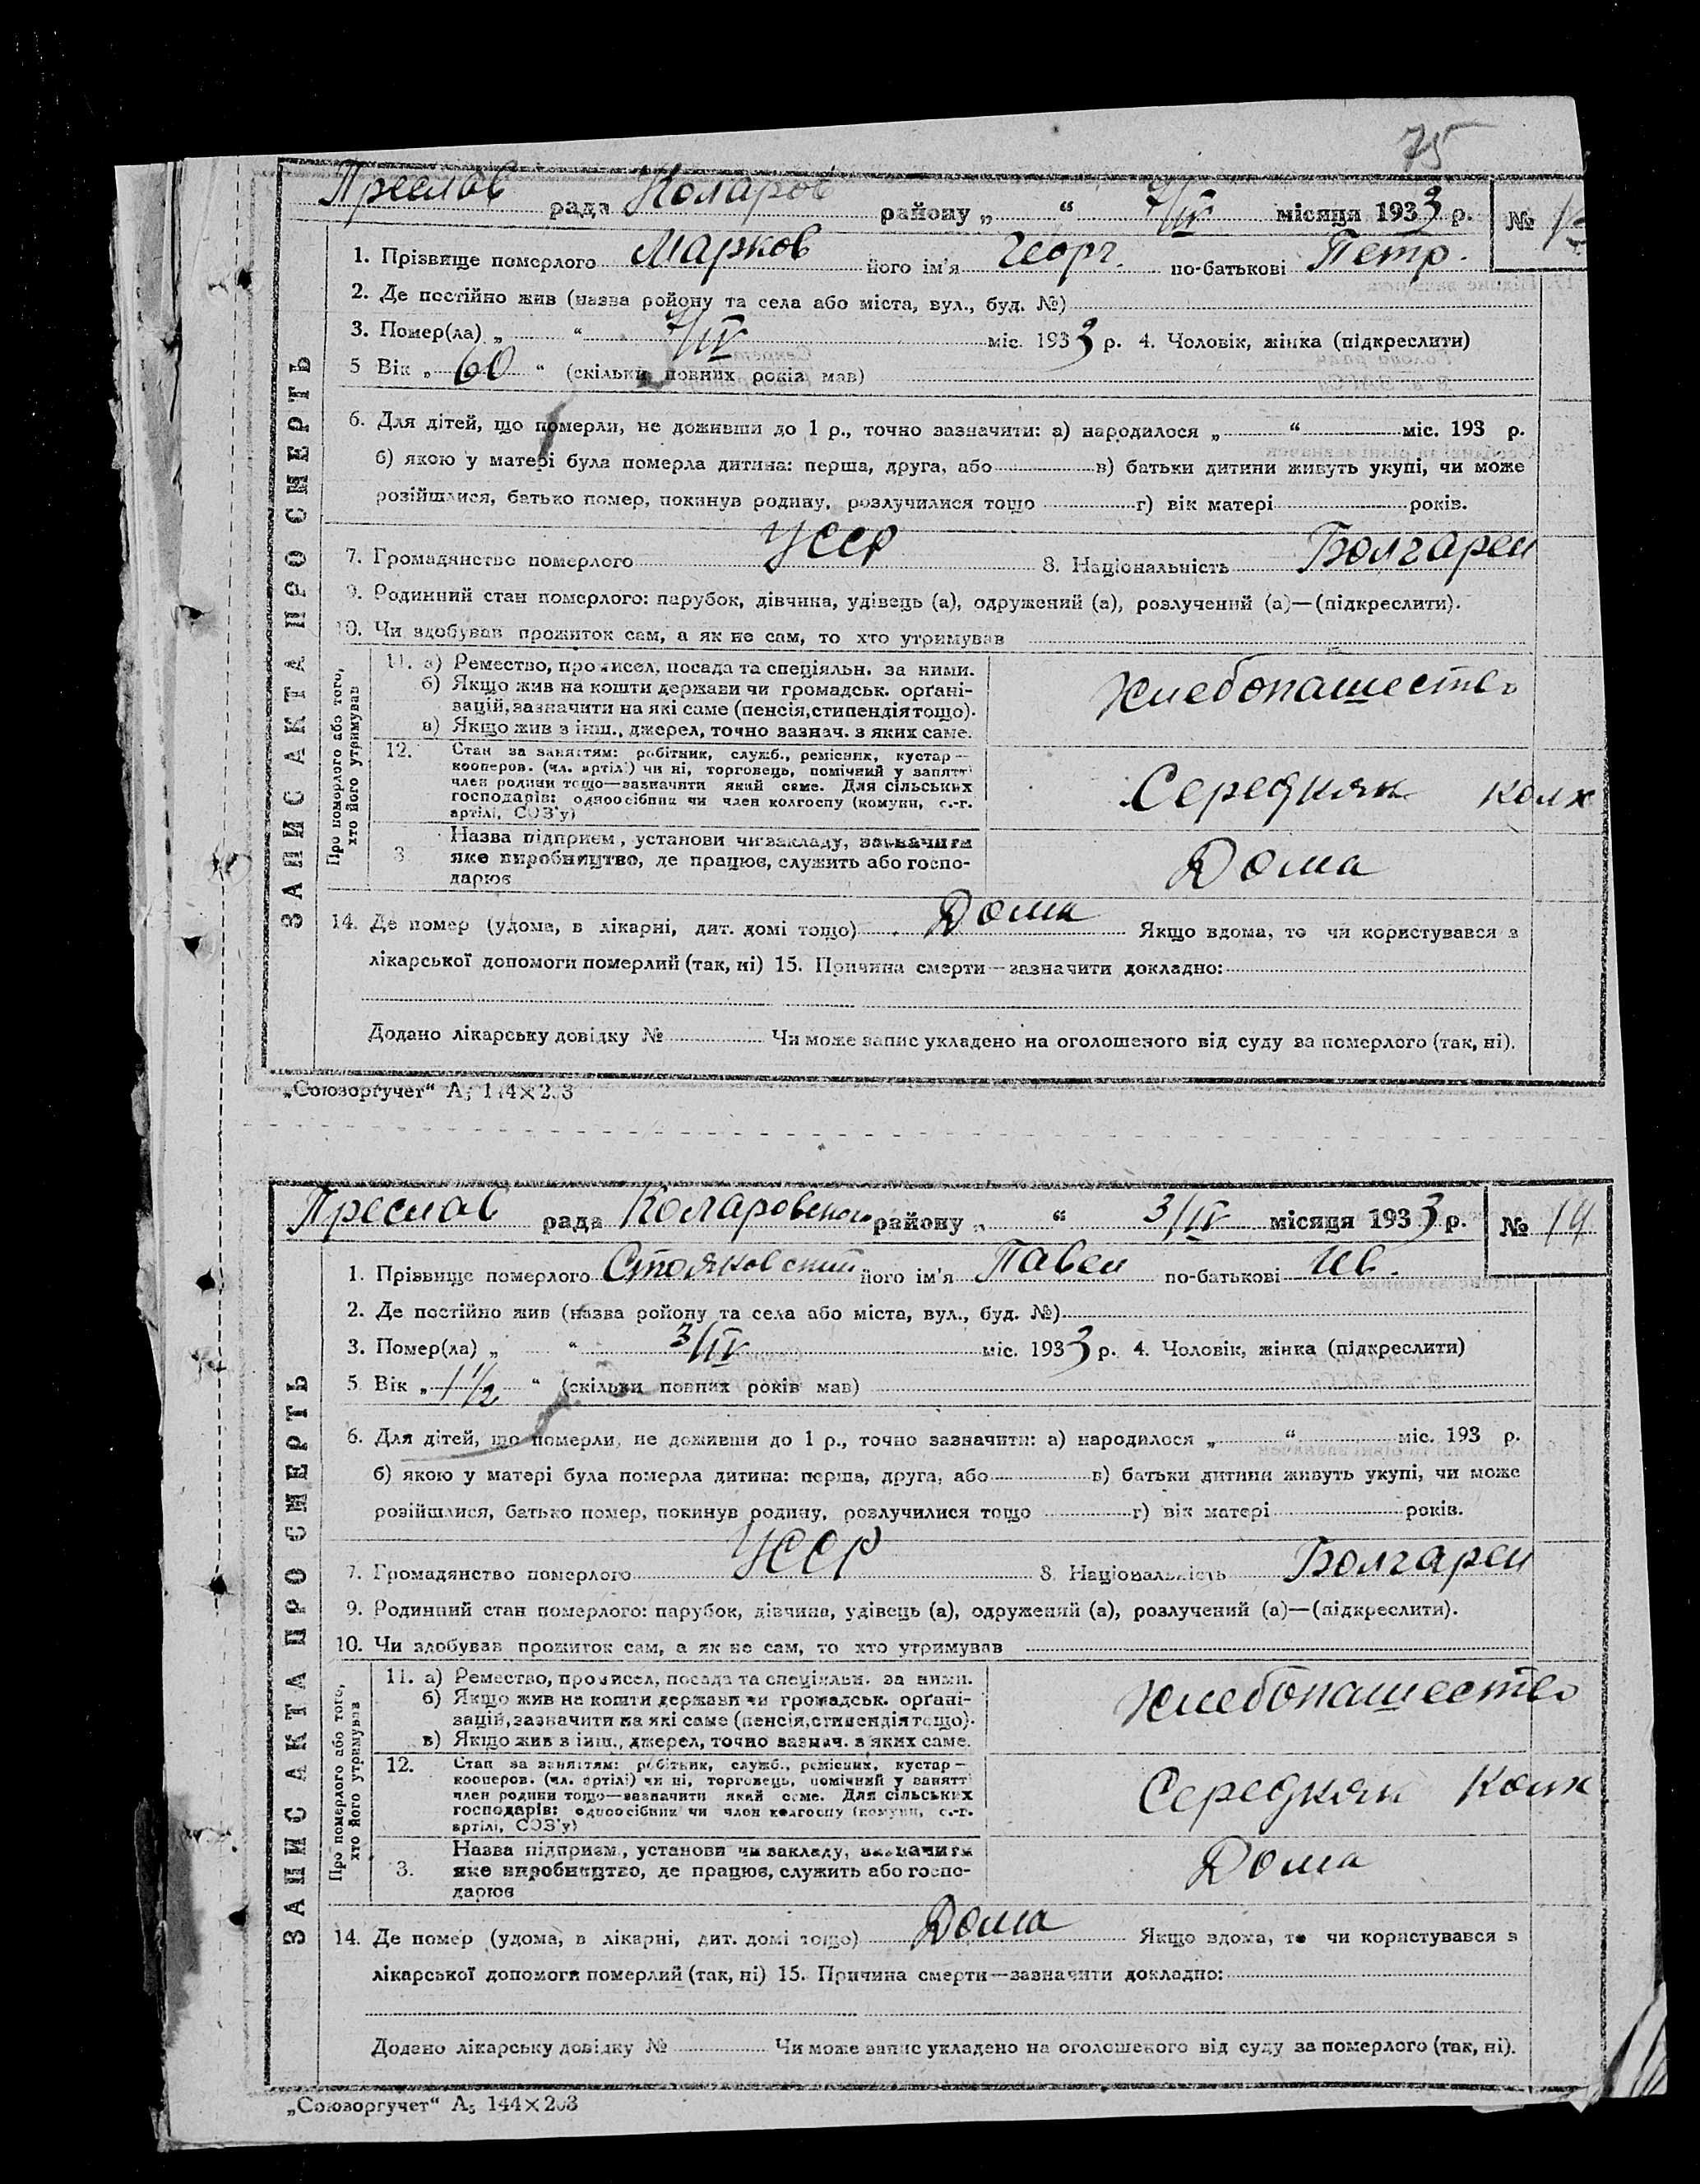 75
Преслав рада Коларов району „ “ 7/IV місяця 1933 р. №
1. Прізвище померлого Марков його ім'я Георг. по-батькові Петр.
2. Де постійно жив (назва району та села або міста, вул., буд. №)
3. Помер(ла) „ “ 7/IV міс. 1933 р. 4. Чоловік, жінка (підкреслити)
5 Вік „ 60 “ (скільки повних років мав)
6. Для дітей, що померли, не доживши до 1 р., точно зазначити: а) народилося „ “ міс. 193 р.
б) якою у матері була померла дитина: перша, друга, або в) батьки дитини живуть укупі, чи може
розійшлися, батько помер, покинув родину, розлучилися тощо г) вік матері років.
7. Громадянство померлого УССР 8. Національність Болгарен
9. Родинний стан померлого: парубок, дівчина, удівець (а), одружений (а), розлучений (а)—(підкреслити).
10. Чи здобував прожиток сам, а як не сам, то хто утримував
ЗАПИС АКТА ПРО СМЕРТЬ
Про померлого або того,
хто його утримував
11. а) Ремество, промисел, посада та спеціяльн. за ними.
б) Якщо жив на кошти держави чи громадськ. орґані-
зацій, зазначити на які саме (пенсія, стипендія тощо).
в) Якщо жив з інш., джерел, точно зазнач. з яких саме.
Хлебопашество
12. Стан за заняттям: робітник, служб., ремісник, кустар—
кооперов. (чл. артілі) чи ні, торговець, помічний у занятті
член родини тощо—зазначити який саме. Для сільських
господарів: одноосібник чи член колгоспу (комуни, с.-г.
артілі, СОЗ'у)
Середняк колх
3 Назва підприєм., установи чи закладу, зазначити
яке виробництво, де працює, служить або госпо-
дарює
Дома
14. Де помер (удома, в лікарні, дит. домі тощо) Дома Якщо вдома, то чи користувався з
лікарської допомоги померлий (так, ні) 15. Причина смерти—зазначити докладно:
Додано лікарську довідку № Чи може запис укладено на оголошеного від суду за померлого (так, ні).
„Союзоргучет“ А5 144×203
Преслав рада Коларовского району „ “ 3/IV місяця 1933 р. № 14
1. Прізвище померлого Стояковский його ім'я Павел по-батькові Ив.
2. Де постійно жив (назва району та села або міста, вул., буд. №)
3. Помер(ла) „ “ 3/IV міс. 1933 р. 4. Чоловік, жінка (підкреслити)
5 Вік „ 1 1/2 “ (скільки повних років мав)
6. Для дітей, що померли, не доживши до 1 р., точно зазначити: а) народилося „ “ міс. 193 р.
б) якою у матері була померла дитина: перша, друга, або в) батьки дитини живуть укупі, чи може
розійшлися, батько помер, покинув родину, розлучилися тощо г) вік матері років.
7. Громадянство померлого УССР 8. Національність Болгарен
9. Родинний стан померлого: парубок, дівчина, удівець (а), одружений (а), розлучений (а)—(підкреслити).
10. Чи здобував прожиток сам, а як не сам, то хто утримував
ЗАПИС АКТА ПРО СМЕРТЬ
Про померлого або того,
хто його утримував
11. а) Ремество, промисел, посада та спеціяльн. за ними.
б) Якщо жив на кошти держави чи громадськ. орґані-
зацій, зазначити на які саме (пенсія, стипендія тощо).
в) Якщо жив з інш., джерел, точно зазнач. з яких саме.
Хлебопашество
12. Стан за заняттям: робітник, служб., ремісник, кустар—
кооперов. (чл. артілі) чи ні, торговець, помічний у занятті
член родини тощо—зазначити який саме. Для сільських
господарів: одноосібник чи член колгоспу (комуни, с.-г.
артілі, СОЗ'у)
Середняк Колх
3. Назва підприєм., установи чи закладу, зазначити
яке виробництво, де працює, служить або госпо-
дарює
Дома
14. Де помер (удома, в лікарні, дит. домі тощо) Дома Якщо вдома, то чи користувався з
лікарської допомоги померлий (так, ні) 15. Причина смерти—зазначити докладно:
Додано лікарську довідку № Чи може запис укладено на оголошеного від суду за померлого (так, ні).
„Союзоргучет“ А5 144×203